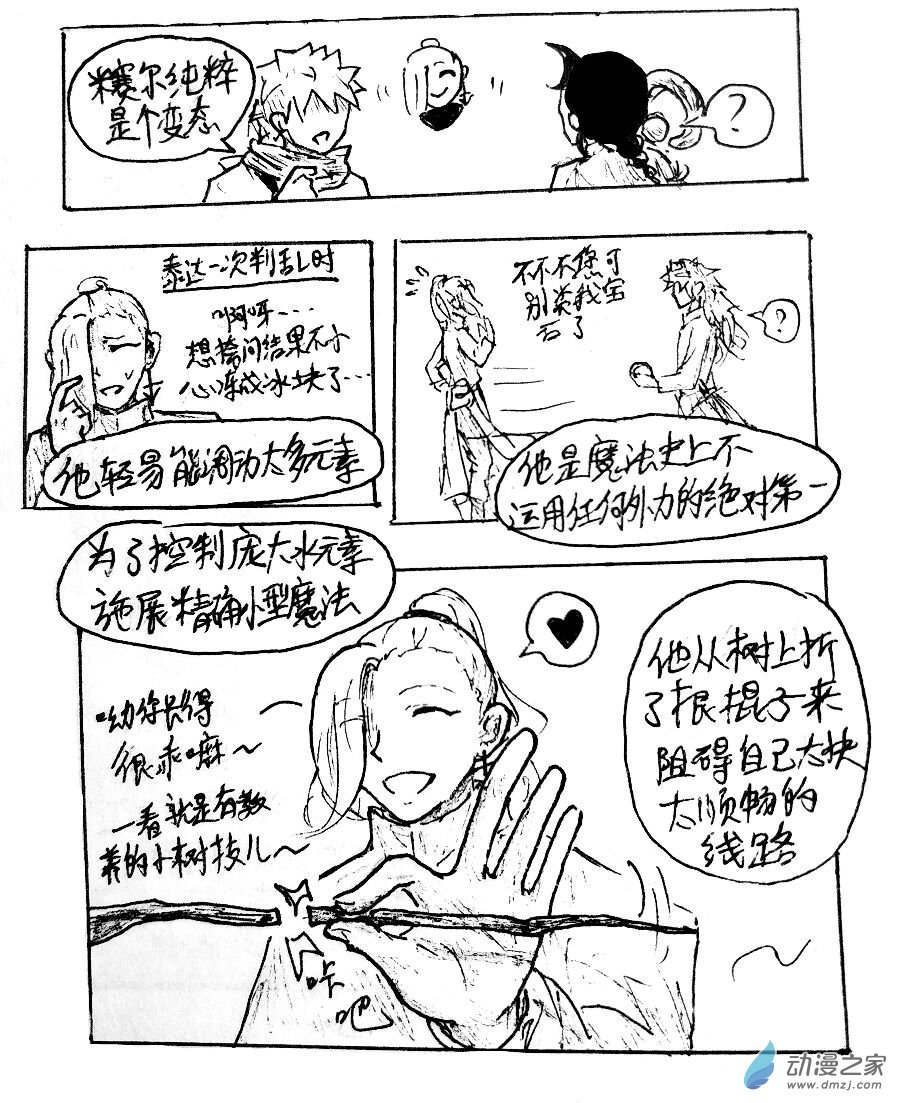 赛尔纯粹
是个变态
?
泰达一次判乱时
啊呀····
想捺问结果不小
心冻成冰块了···
他轻易能调动太多元素
不不不您可
别送我宝
石了
?
他是魔法史上不
运用任何外力的绝对第一
为了控制庞大水元素
施展精确小型魔法
呦你长得
很乖嘛~
一看就是有教
养的小树枝儿~
他从树上折
了根棍子来
阻碍自己太快
太顺畅的
线路
咔
吧
动漫之家
www.dmzj.com